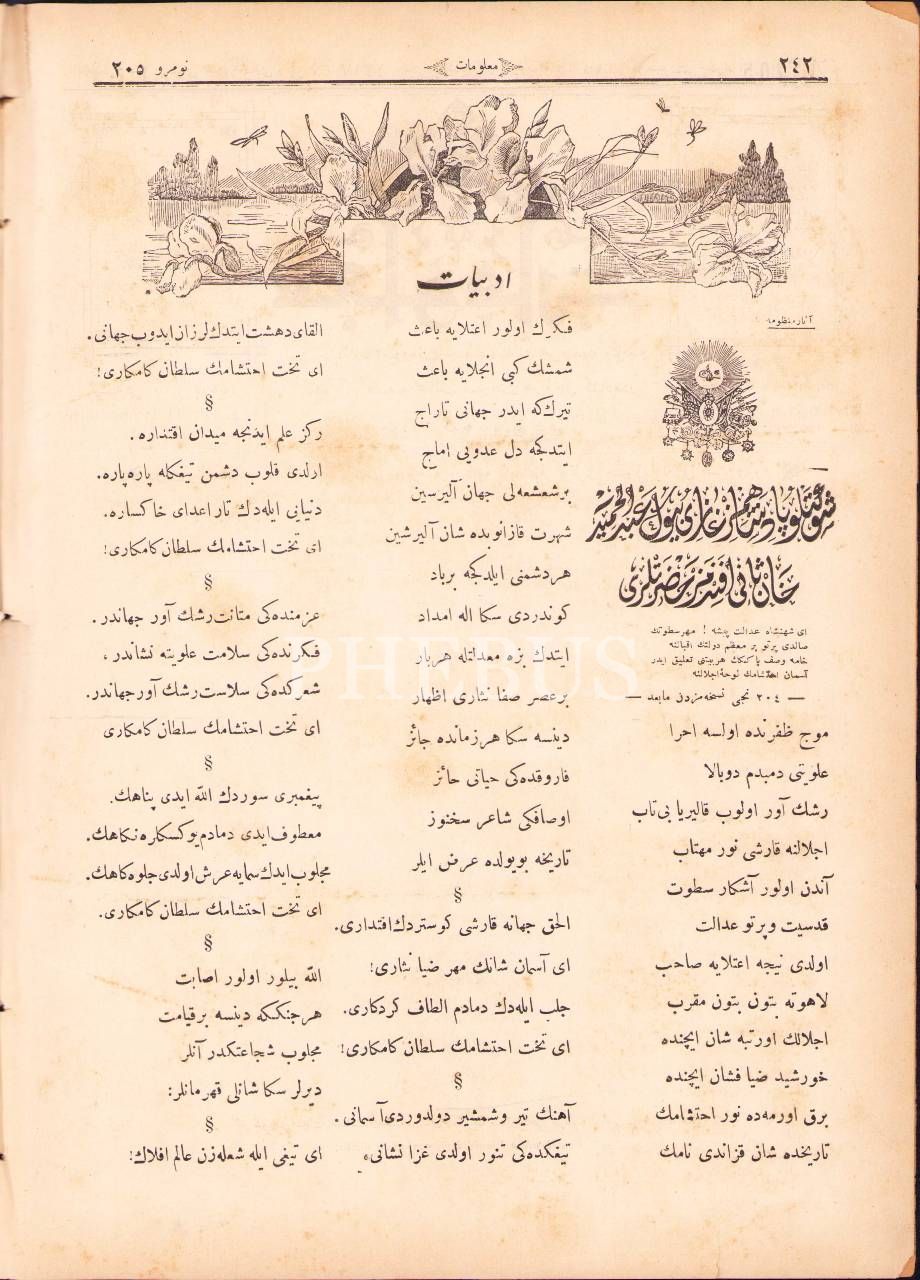 ٢٤٢
معلومات
نومرو ٢٠٥
ادبيات
آثار منظومه
شوكتلو پادشاهمز غازى بيوك عبد الحميد
خان ثانى افندمز حضرتلرى
اى شهنشاه عدالت پيشه ! مهر سطوتك
صالدى پرتو بر معظم دولتك اقبالنه
خامه وصف پاكنك هر بيتنى تعليق ايدر
آسمان احتشامك لوحۀ اجلالنه
— ٢٠٤ نجى نسخه‌مزدن مابعد —
موج ظفرنده اولسه احرا
علويتى دمبدم دوبالا
رشك آور اولوب قاليريا بى تاب
اجلالنه قارشى نور مهتاب
آندن اولور آشكار سطوت
قدسيت و پرتو عدالت
اولدى نيجه اعتلايه صاحب
لاهوته بتون بتون مقرب
اجلالك اورتبه شان ايچنده
خورشيد ضيا فشان ايچنده
برق اورمه‌ده نور احتشامك
تاريخده شان قزاندى نامك
فكرك اولور اعتلايه باعث
شمشك كبى انجلايه باعث
تيرك كه ايدر جهانى تاراج
ايتدكجه دل عدويى اماج
بر شعشعه‌لى جهان آليرسين
شهرت قازانوبده شان آليرشين
هر دشمنى ايلدكجه برباد
كوندردى سكا اله امداد
ايتدك بزه معدلتله هر بار
بر عصر صفا نثارى اظهار
دينسه سكا هر زمانده جائز
فاروقده‌كى حياتى حائز
اوصافكى شاعر سخنور
تاريخه بويولده عرض ايلر
§
الحق جهانه قارشى كوستردك اقتدارى.
اى آسمان شانك مهر ضيا نثارى!
جلب ايله‌دك دمادم الطاف كردكارى.
اى تخت احتشامك سلطان كامكارى!
§
آهنك تير و شمشير دولدوردى آسمانى.
تيغكده‌كى تنور اولدى غزا نشانى،
القاى دهشت ايتدك لرزان ايدوب جهانى.
اى تخت احتشامك سلطان كامكارى!
§
ركز علم ايدنجه ميدان اقتداره.
ارلدى قلوب دشمن تيغكله پاره پاره.
دنيايى ايله‌دك تار اعداى خاكساره.
اى تخت احتشامك سلطان كامكارى!
§
عزمنده‌كى متانت رشك آور جهاندر.
فكرنده‌كى سلامت علويته نشاندر،
شعركده‌كى سلاست رشك آور جهاندر.
اى تخت احتشامك سلطان كامكارى
§
پيغمبرى سوردك الله ايدى پناهك.
معطوف ايدى دمادم يوكسكلره نكاهك.
مجلوب ايدك سمايه عرش اولدى جلوه كاهك.
اى تخت احتشامك سلطان كامكارى.
§
الله بيلور اولور اصابت
هر جنككه دينسه بر قيامت
مجلوب شجاعتكدر آنلر
ديرلر سكا شانلى قهرمانلر:
§
اى تيغى ايله شعله‌زن عالم افلاك!
PHEBUS